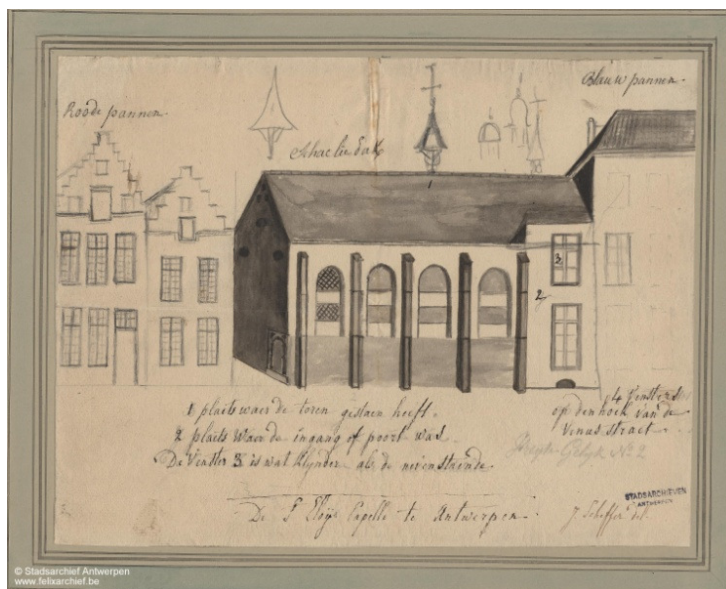 Blauw pannen.
Roode pannen.
Schaelie dak
1
3
2
1 plaits waer de toren gestaen heeft.
2 plaits waer de ingang of poort was
De Venster 3 is wat klynder als de nevenstaende
4 Vensters
op den hoek van de
Venus straet.
Gelyk No 2
De St Eloys Capelle te Antwerpen.
J. Scheffer del.
STADSARCHIEVEN
ANTWERPEN
© Stadsarchief Antwerpen
www.felixarchief.be